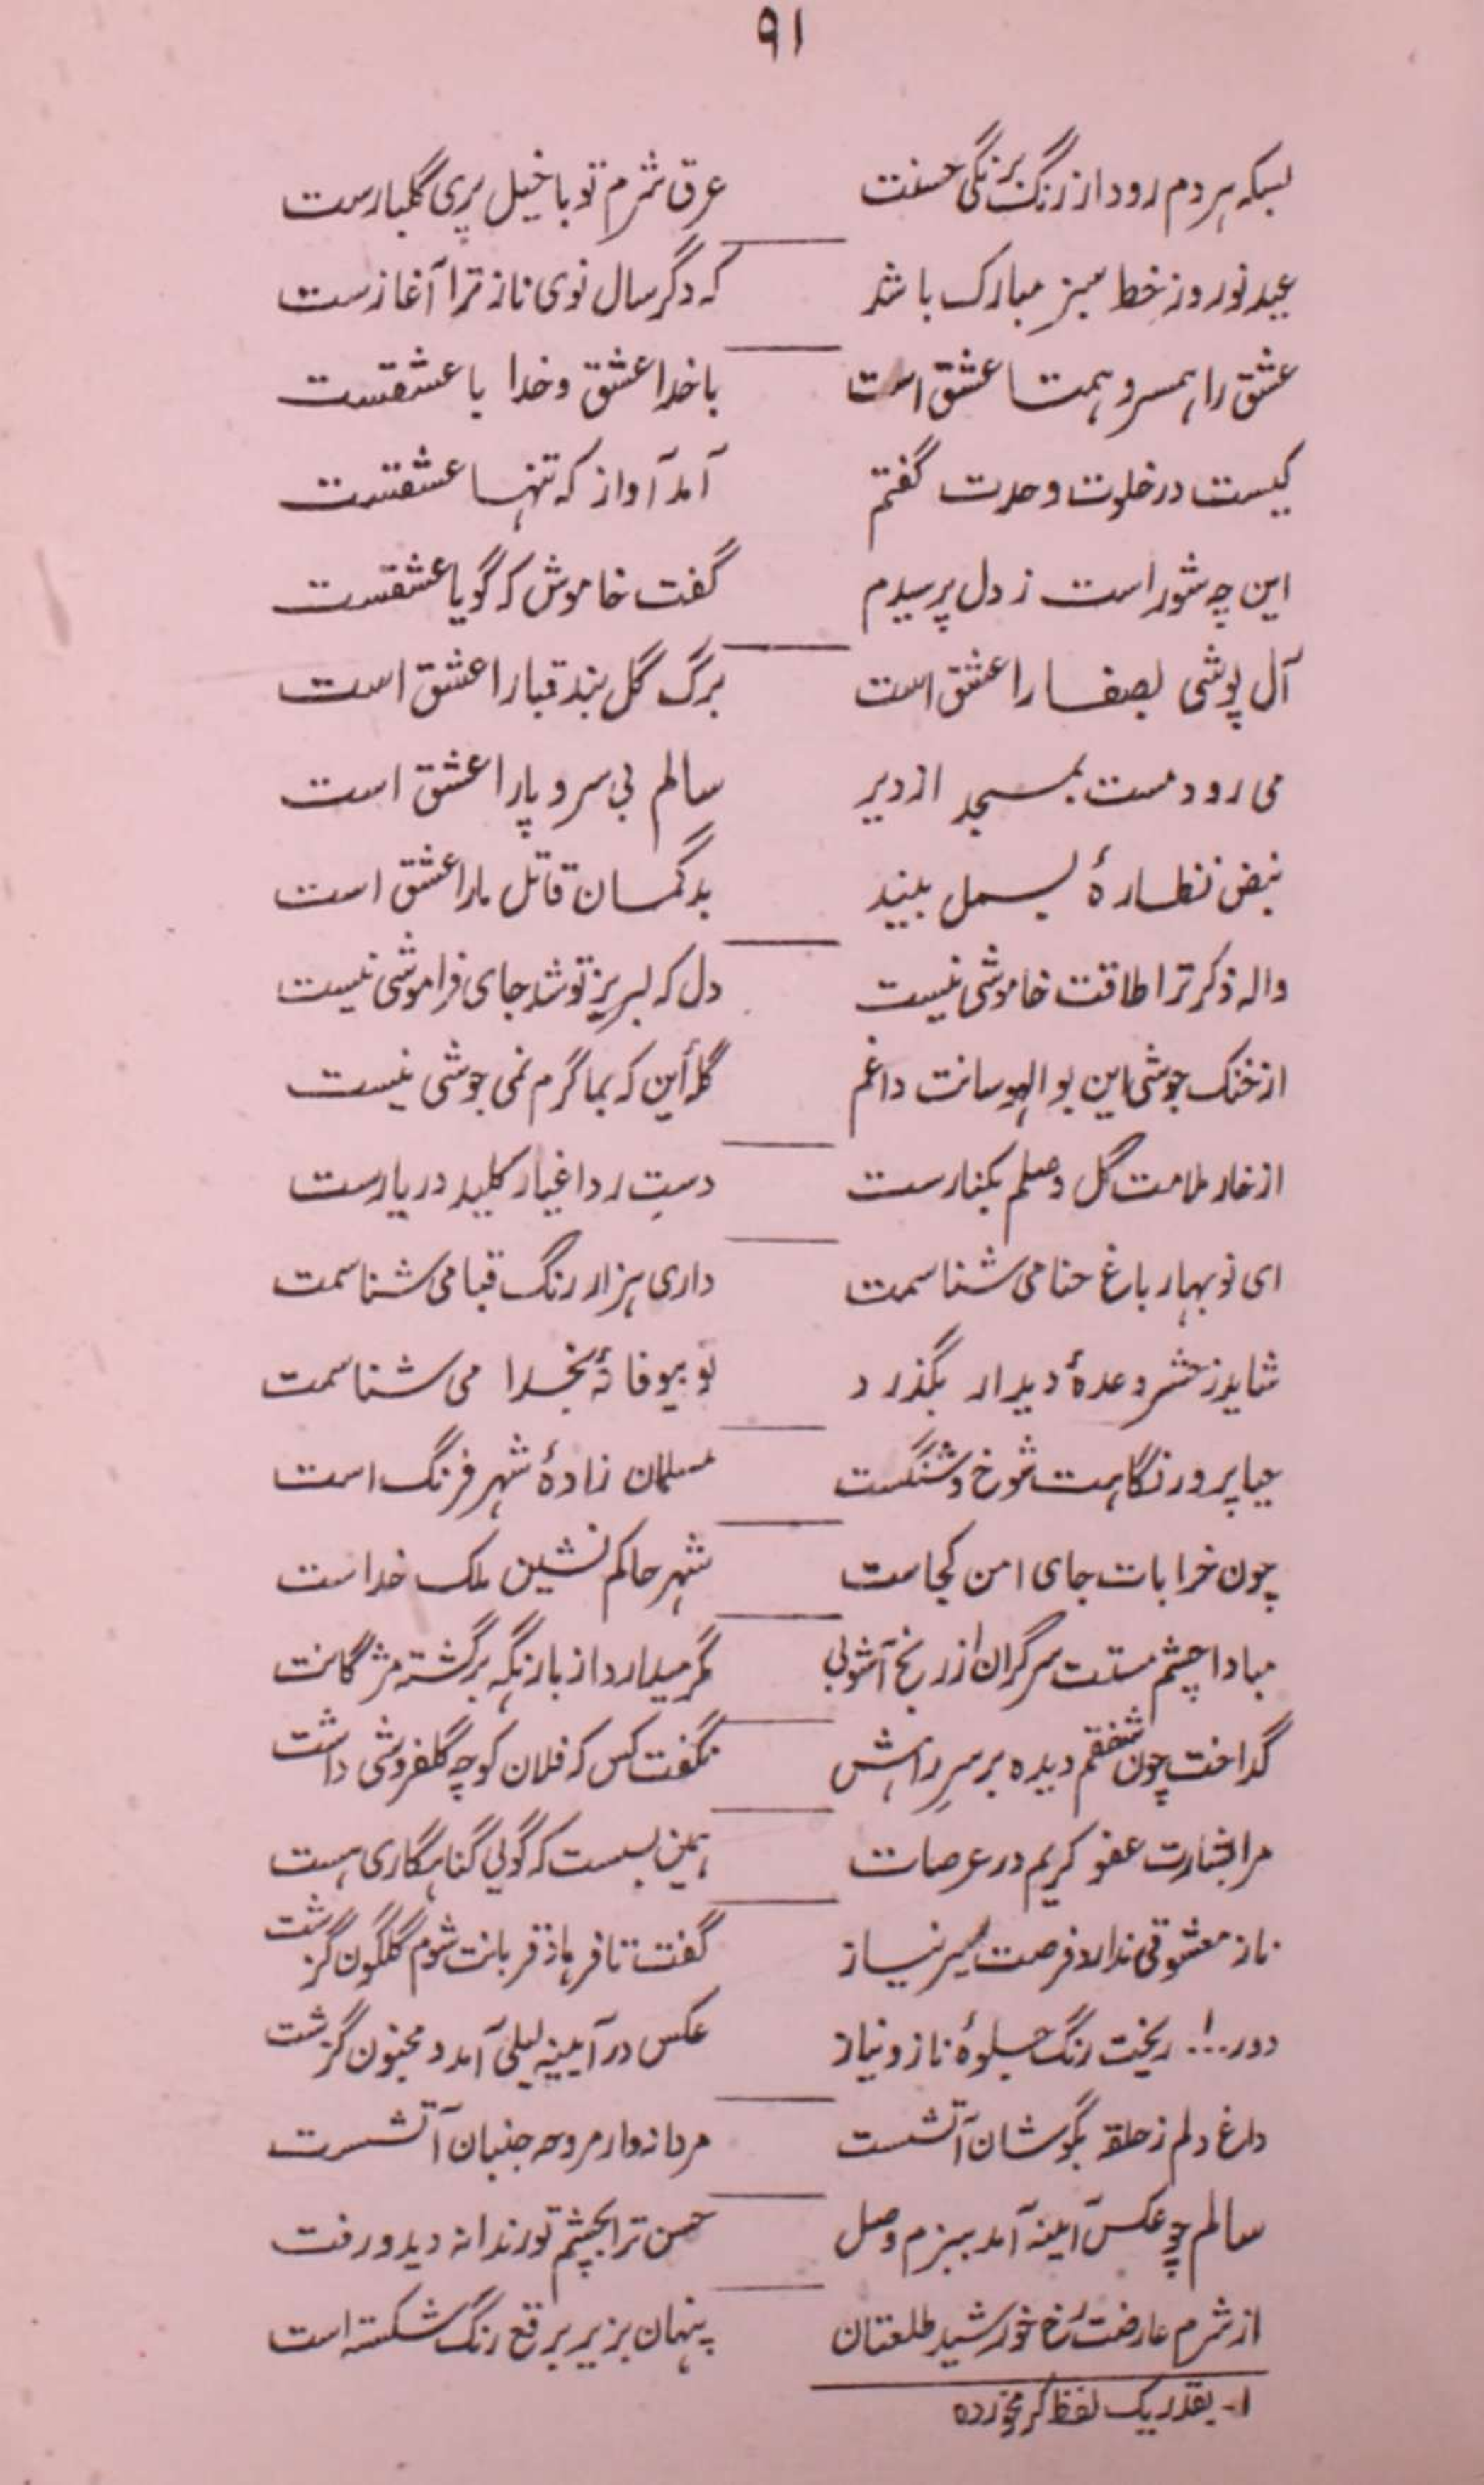 ۹۱
بسکه هر دم رود از رنگ برنگی حسنت عرق شرم تو با خیل پری گلبارست
عید نوروز خط سبز مبارک باشد که دگر سال نوی ناز ترا آغازست
عشق را همسر و همتا عشق است با خدا عشق و خدا با عشقست
کیست در خلوت وحدت گفتم آمد آواز که تنها عشقست
این چه شور است ز دل پرسیدم گفت خاموش که گویا عشقست
آل پوشی بصفا را عشق است برگ گل بند قبا را عشق است
می رود مست بمسجد از دیر سالم بی سر و پا را عشق است
نبض نظارهٔ بسمل بیند بدگمان قاتل ما را عشق است
واله ذکر ترا طاقت خاموشی نیست دل که لبریز تو شد جای فراموشی نیست
از خنک جوشی این بوالهوسانت داغم گلهٔ این که بما گرم نمی جوشی نیست
از خار ملامت گل وصلم بکنارست دستِ رد اغیار کلید در یارست
ای نوبهار باغ حنا می شناسمت داری هزار رنگ قبا می شناسمت
شاید ز حشر وعدهٔ دیدار بگذرد تو بیوفا نهٔ بخدا می شناسمت
حیا پرور نگاهت شوخ و شنگست مسلمان زادهٔ شهر فرنگ است
چون خرابات جای امن کجاست شهر حاکم نشین ملک خداست
مبادا چشم مستت سرگران از رنج آشوبی مگر میدارد از بار نگه برگشته مژگانت
گداخت چون شفقم دیده بر سرِ راهش نگفت کس که فلان کوچه گلفروشی داشت
مرا بشارت عفو کریم در عرصات همین بسست که گویی گناهگاری هست
ناز معشوقی ندارد فرصت سیر نیاز گفت تا فرهاد قربانت شوم گلگون گزشت
دور...۱ ریخت رنگ جلوهٔ ناز و نیاز عکس در آیینه لیلی آمد و مجنون گزشت
داغ دلم ز حلقه بگوشان آتشست مردانه وار مروحه جنبان آتشست
سالم چو عکس آینه آمد ببزم وصل حسن ترا بچشم تو رندانه دید و رفت
از شرم عارضت رخ خورشید طلعتان پنهان بزیر برقع رنگ شکسته است
۱- بقدر یک لفظ کرمخورده